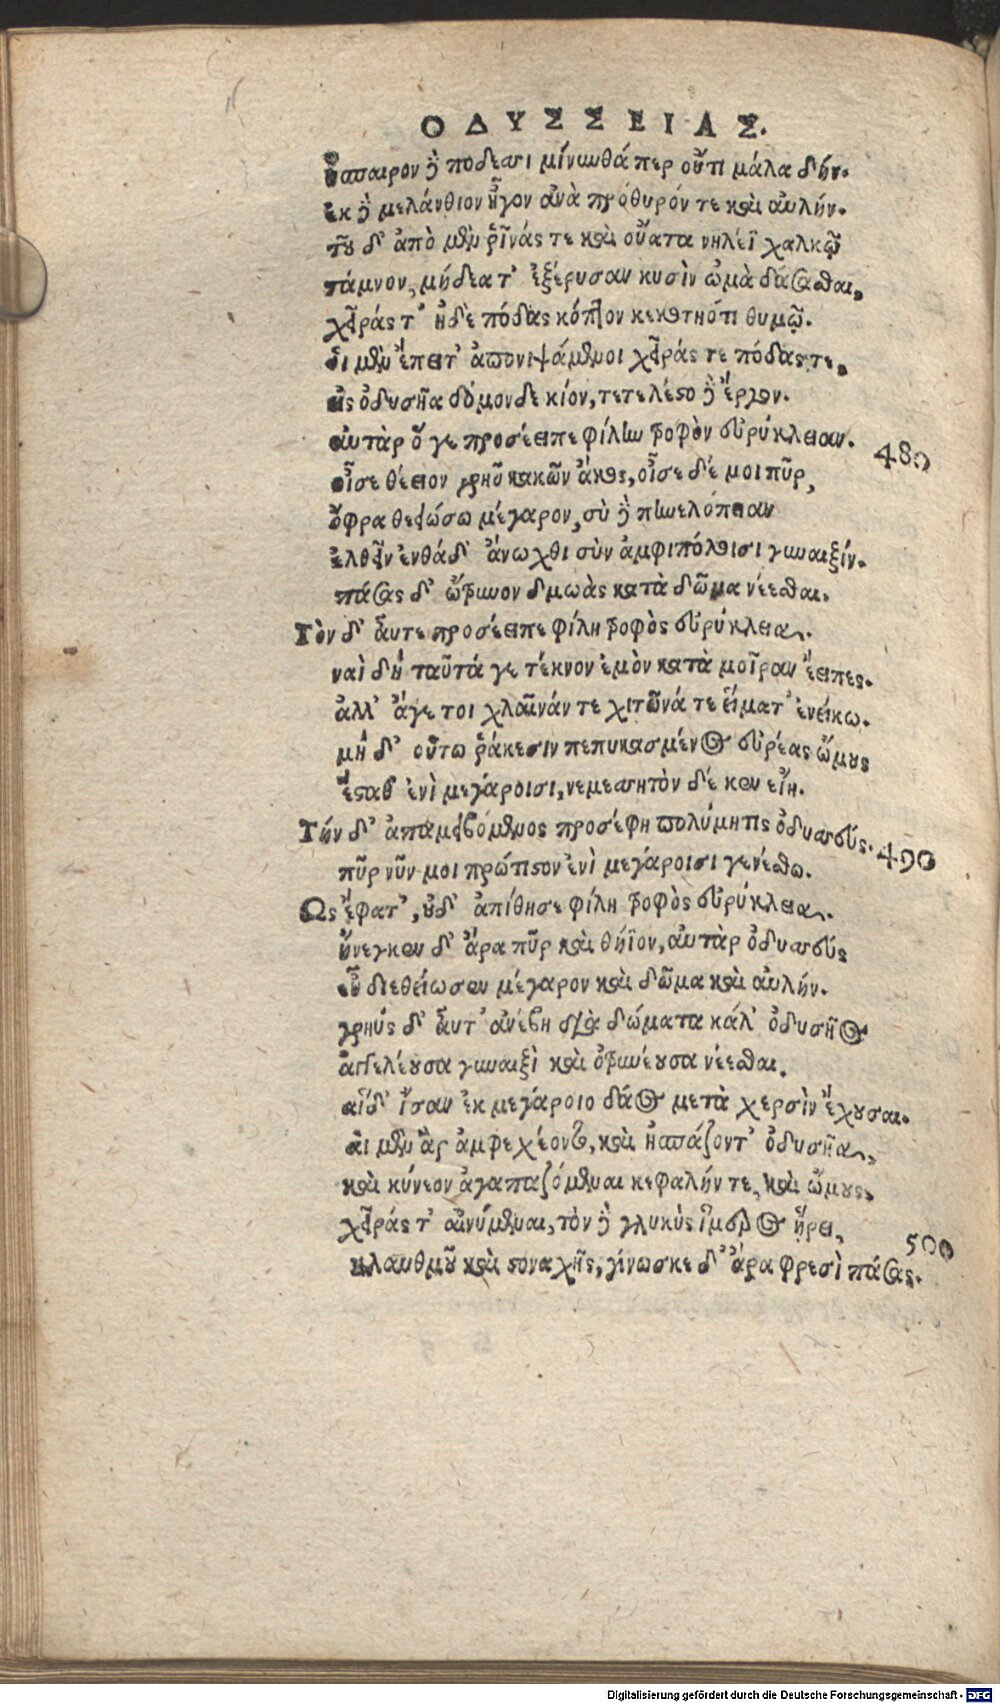 ΟΔΥΣΣΕΙΑΣ.
ἤσπαιρον δὲ πόδεσσι μίνυνθά περ οὔτι μάλα δήν.
ἐκ δὲ μελάνθιον ἦγον ἀνὰ πρόθυρόν τε καὶ αὐλήν.
τοῦ δ' ἀπὸ μὲν ῥῖνάς τε καὶ οὔατα νηλέϊ χαλκῷ
τάμνον, μήδεα τ' ἐξέρυσαν κυσὶν ὠμὰ δάσασθαι,
χεῖράς τ' ἠδὲ πόδας κόπτον κεκοτηότι θυμῷ.
οἱ μὲν ἔπειτ' ἀπονιψάμενοι χεῖράς τε πόδας τε,
εἰς ὀδυσῆα δόμονδε κίον, τετέλεστο δὲ ἔργον.
αὐτὰρ ὅ γε προσέειπε φίλην τροφὸν εὐρύκλειαν. 480
οἶσε θέειον γρηῢ κακῶν ἄκος, οἶσε δέ μοι πῦρ,
ὄφρα θεειώσω μέγαρον, σὺ δὲ πηνελόπειαν
ἐλθεῖν ἐνθάδ' ἄνωχθι σὺν ἀμφιπόλοισι γυναιξίν.
πάσας δ' ὤτρυνον δμωὰς κατὰ δῶμα νέεσθαι.
Τὸν δ' αὖτε προσέειπε φίλη τροφὸς εὐρύκλεια.
ναὶ δὴ ταῦτά γε τέκνον ἐμὸν κατὰ μοῖραν ἔειπες.
ἀλλ' ἄγε τοι χλαῖνάν τε χιτῶνά τε εἵματ' ἐνείκω.
μὴ δ' οὕτω ῥάκεσιν πεπυκασμένος εὐρέας ὤμους
ἕσταθ' ἐνὶ μεγάροισι, νεμεσητὸν δέ κεν εἴη.
Τὴν δ' ἀπαμειβόμενος προσέφη πολύμητις ὀδυσσεύς. 490
πῦρ νῦν μοι πρώτιστον ἐνὶ μεγάροισι γενέσθω.
Ὣς ἔφατ', οὐδ' ἀπίθησε φίλη τροφὸς εὐρύκλεια.
ἤνεγκεν δ' ἄρα πῦρ καὶ θήϊον, αὐτὰρ ὀδυσσεὺς
εὖ διεθείωσεν μέγαρον καὶ δῶμα καὶ αὐλήν.
γρηῢς δ' αὖτ' ἀνέβη διὰ δώματα κάλ' ὀδυσῆος
ἀγγελέουσα γυναιξὶ καὶ ὀτρυνέουσα νέεσθαι.
αἱ δ' ἴσαν ἐκ μεγάροιο δάος μετὰ χερσὶν ἔχουσαι.
αἱ μὲν ἂρ ἀμφεχέοντο, καὶ ἠσπάζοντ' ὀδυσῆα,
καὶ κύνεον ἀγαπαζόμεναι κεφαλήν τε, καὶ ὤμους,
χεῖράς τ' αἰνύμεναι, τὸν δὲ γλυκὺς ἵμερος ᾕρει, 500
κλαυθμοῦ καὶ στοναχῆς, γίνωσκε δ' ἄρα φρεσὶ πάσας.
Digitalisierung gefördert durch die Deutsche Forschungsgemeinschaft - DFG